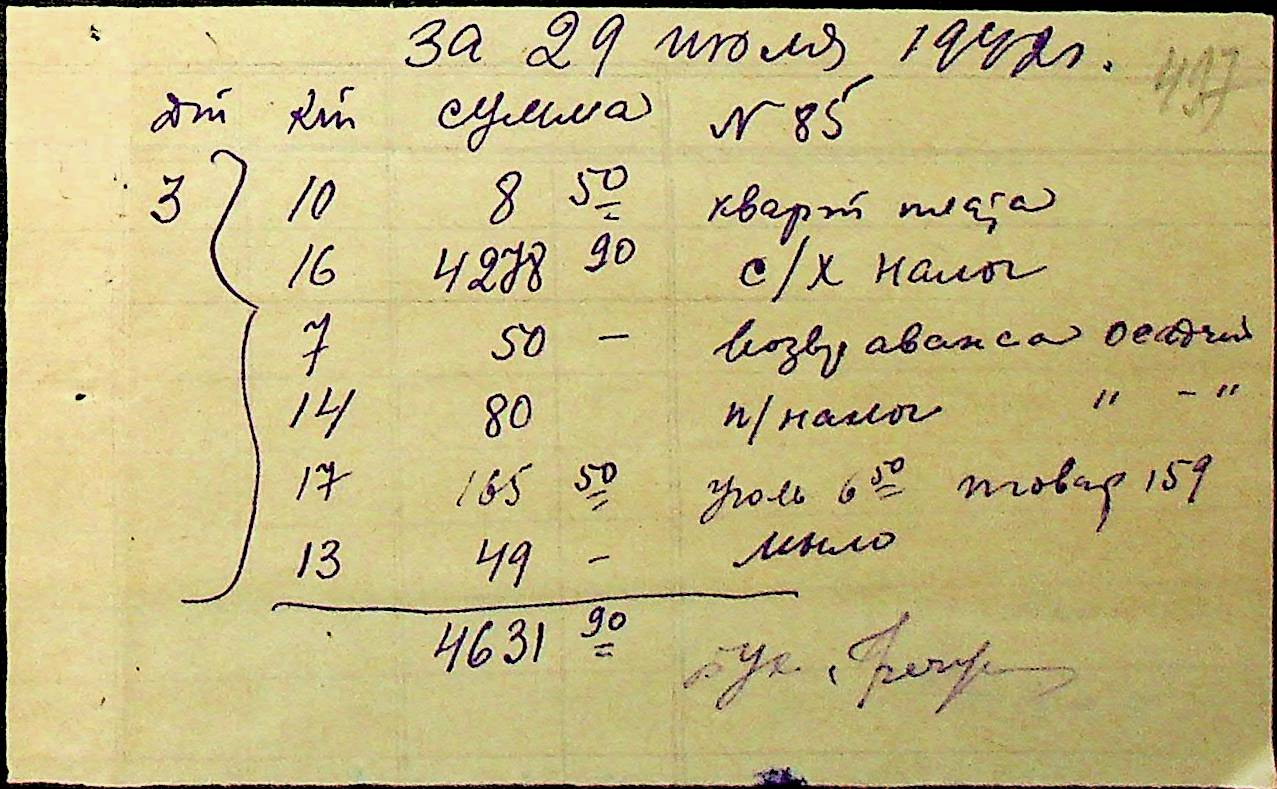 за 29 июля 1942г.
497
Дт Кт сумма № 85
3 10 8 50 кварт плата
16 4278 90 с/х налог
7 50 — возвр аванса Осадчий
14 80 п/налог " - "
17 165 50 уголь 6 50 товар 159
13 49 - мыло
4631 90
Бух.